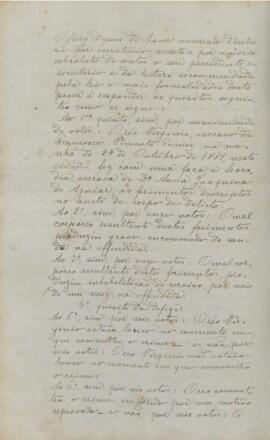 O jury depois de haver nomeado dentre
si por escrutinio secreto e por maioria
absoluta de votos o seu presidente e
secretario e da leitura recommendada
pela lei e mais formalidades desta
passa a responder os quisitos seguin
tes como se segue:
Ao 1º quisito, sim, por unanimidade
de votos: O réo Virginio, escravo de
Francisco Pimenta Gomes, na ma
nhã de 24 de Outubro de 1881, nesta
cidade, fez com uma faca, a Leoca
dia escrava da Dª Anna Joaquina
de Aguiar, os ferimentos descriptos
no auto de corpo de delicto.
Ao 2º, sim, por onze votos: O mal
corporeo resultante destes ferimentos
produziu grave incommodo de sau
de na offendida.
Ao 3º, sim, por onze votos: O mal cor
poreo resultante destes ferimentos, pro
duziu inhabilitação de serviço, por mais
de um mez, na offendida.
quisito da defesa
Ao 5º, sim, por seis votos: O réo Vir
ginio estava louco no momento em
que commetteu o crime; e não, por
seis votos: O réo Virginio não estava
louco no momento em que commetteu
o crime.
Ao 6º, sim, por seis votos: O réo commet
teu o crime impellido por um motivo
reprovado e não, por seis votos: O